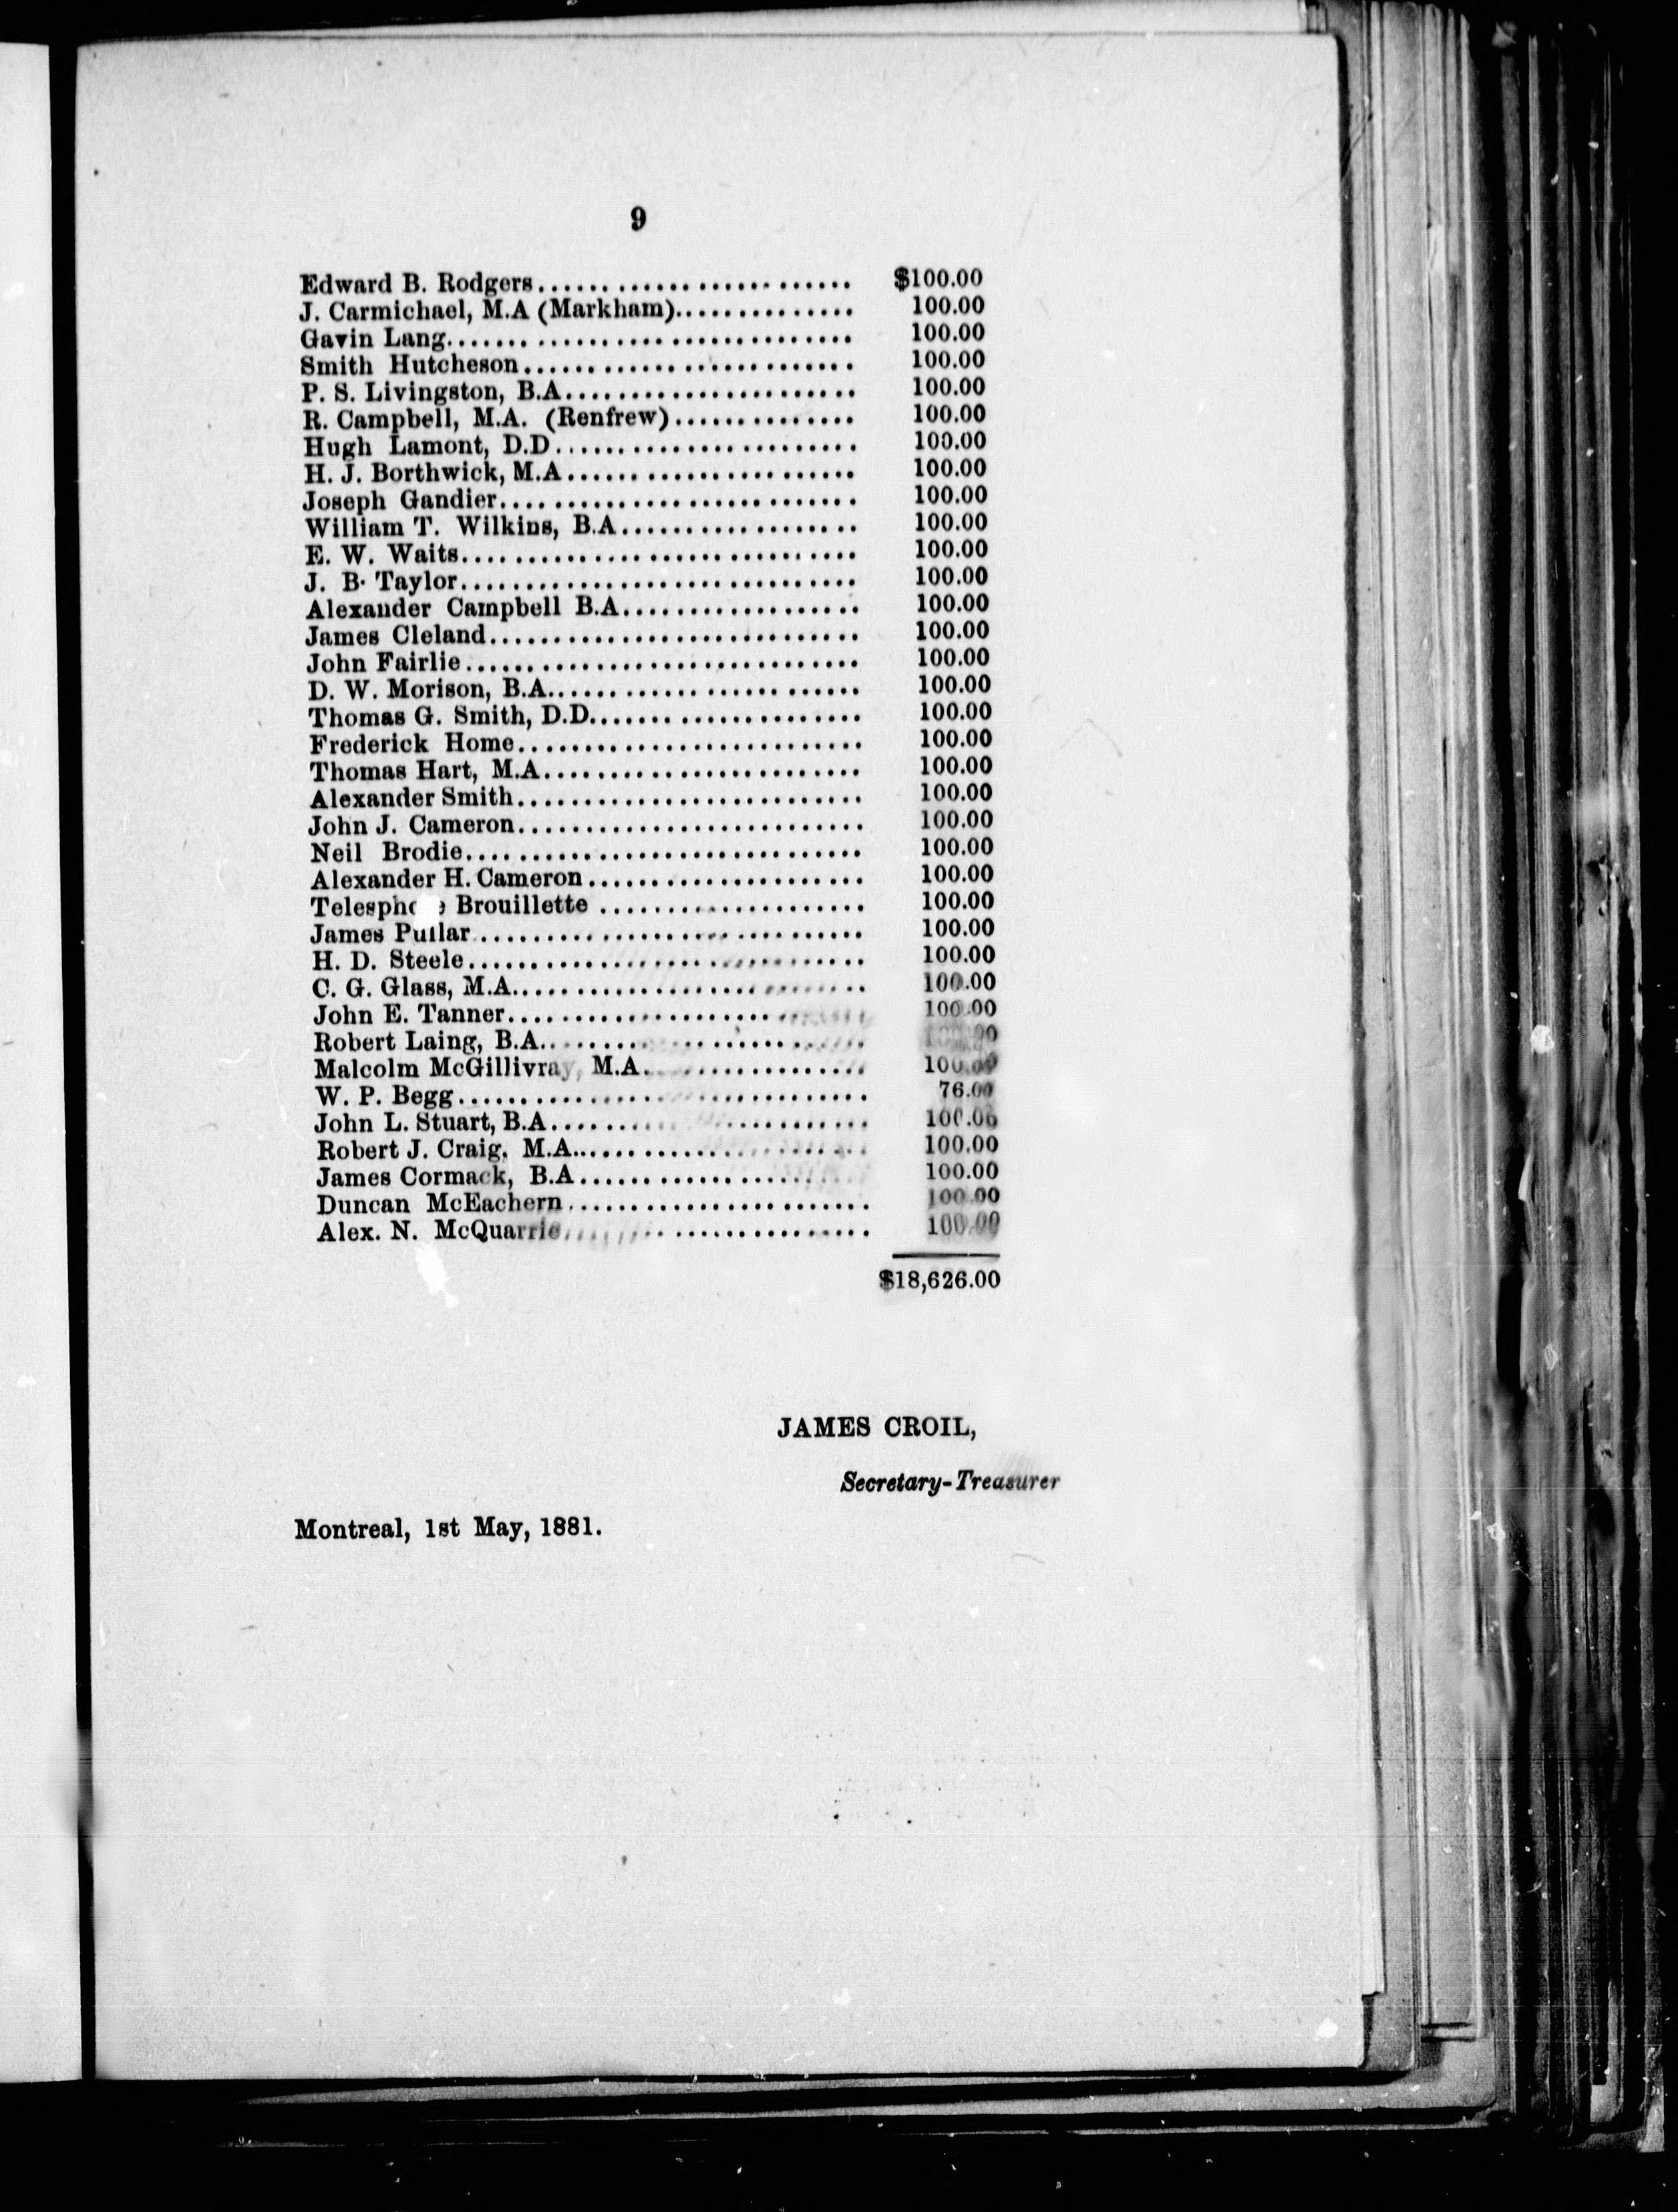 9
Edward B. Rodgers.......................... $100.00
J. Carmichael, M.A (Markham)............... 100.00
Gavin Lang................................. 100.00
Smith Hutcheson.......................... 100.00
P. S. Livingston, B.A...................... 100.00
R. Campbell, M.A. (Renfrew).............. 100.00
Hugh Lamont, D.D........................ 100.00
H. J. Borthwick, M.A...................... 100.00
Joseph Gandier............................ 100.00
William T. Wilkins, B.A.................. 100.00
E. W. Waits............................... 100.00
J. B. Taylor............................... 100.00
Alexander Campbell B.A.................. 100.00
James Cleland............................. 100.00
John Fairlie............................... 100.00
D. W. Morison, B.A........................ 100.00
Thomas G. Smith, D.D..................... 100.00
Frederick Home........................... 100.00
Thomas Hart, M.A......................... 100.00
Alexander Smith........................... 100.00
John J. Cameron........................... 100.00
Neil Brodie............................... 100.00
Alexander H. Cameron..................... 100.00
Brouillette .................... 100.00
James Pullar.............................. 100.00
H. D. Steele............................... 100.00
C. G. Glass, M.A........................... 100.00
John E. Tanner............................ 100.00
Robert Laing, B.A.........................
Malcolm McGillivray, M.A................. 100.00
W. P. Begg................................ 76.00
John L. Stuart, B.A........................ 100.00
Robert J. Craig, M.A....................... 100.00
James Cormack, B.A...................... 100.00
Duncan McEachern....................... 100.00
Alex. N. McQuarrie....................... 100.00
$18,626.00
JAMES CROIL,
Secretary-Treasurer
Montreal, 1st May, 1881.